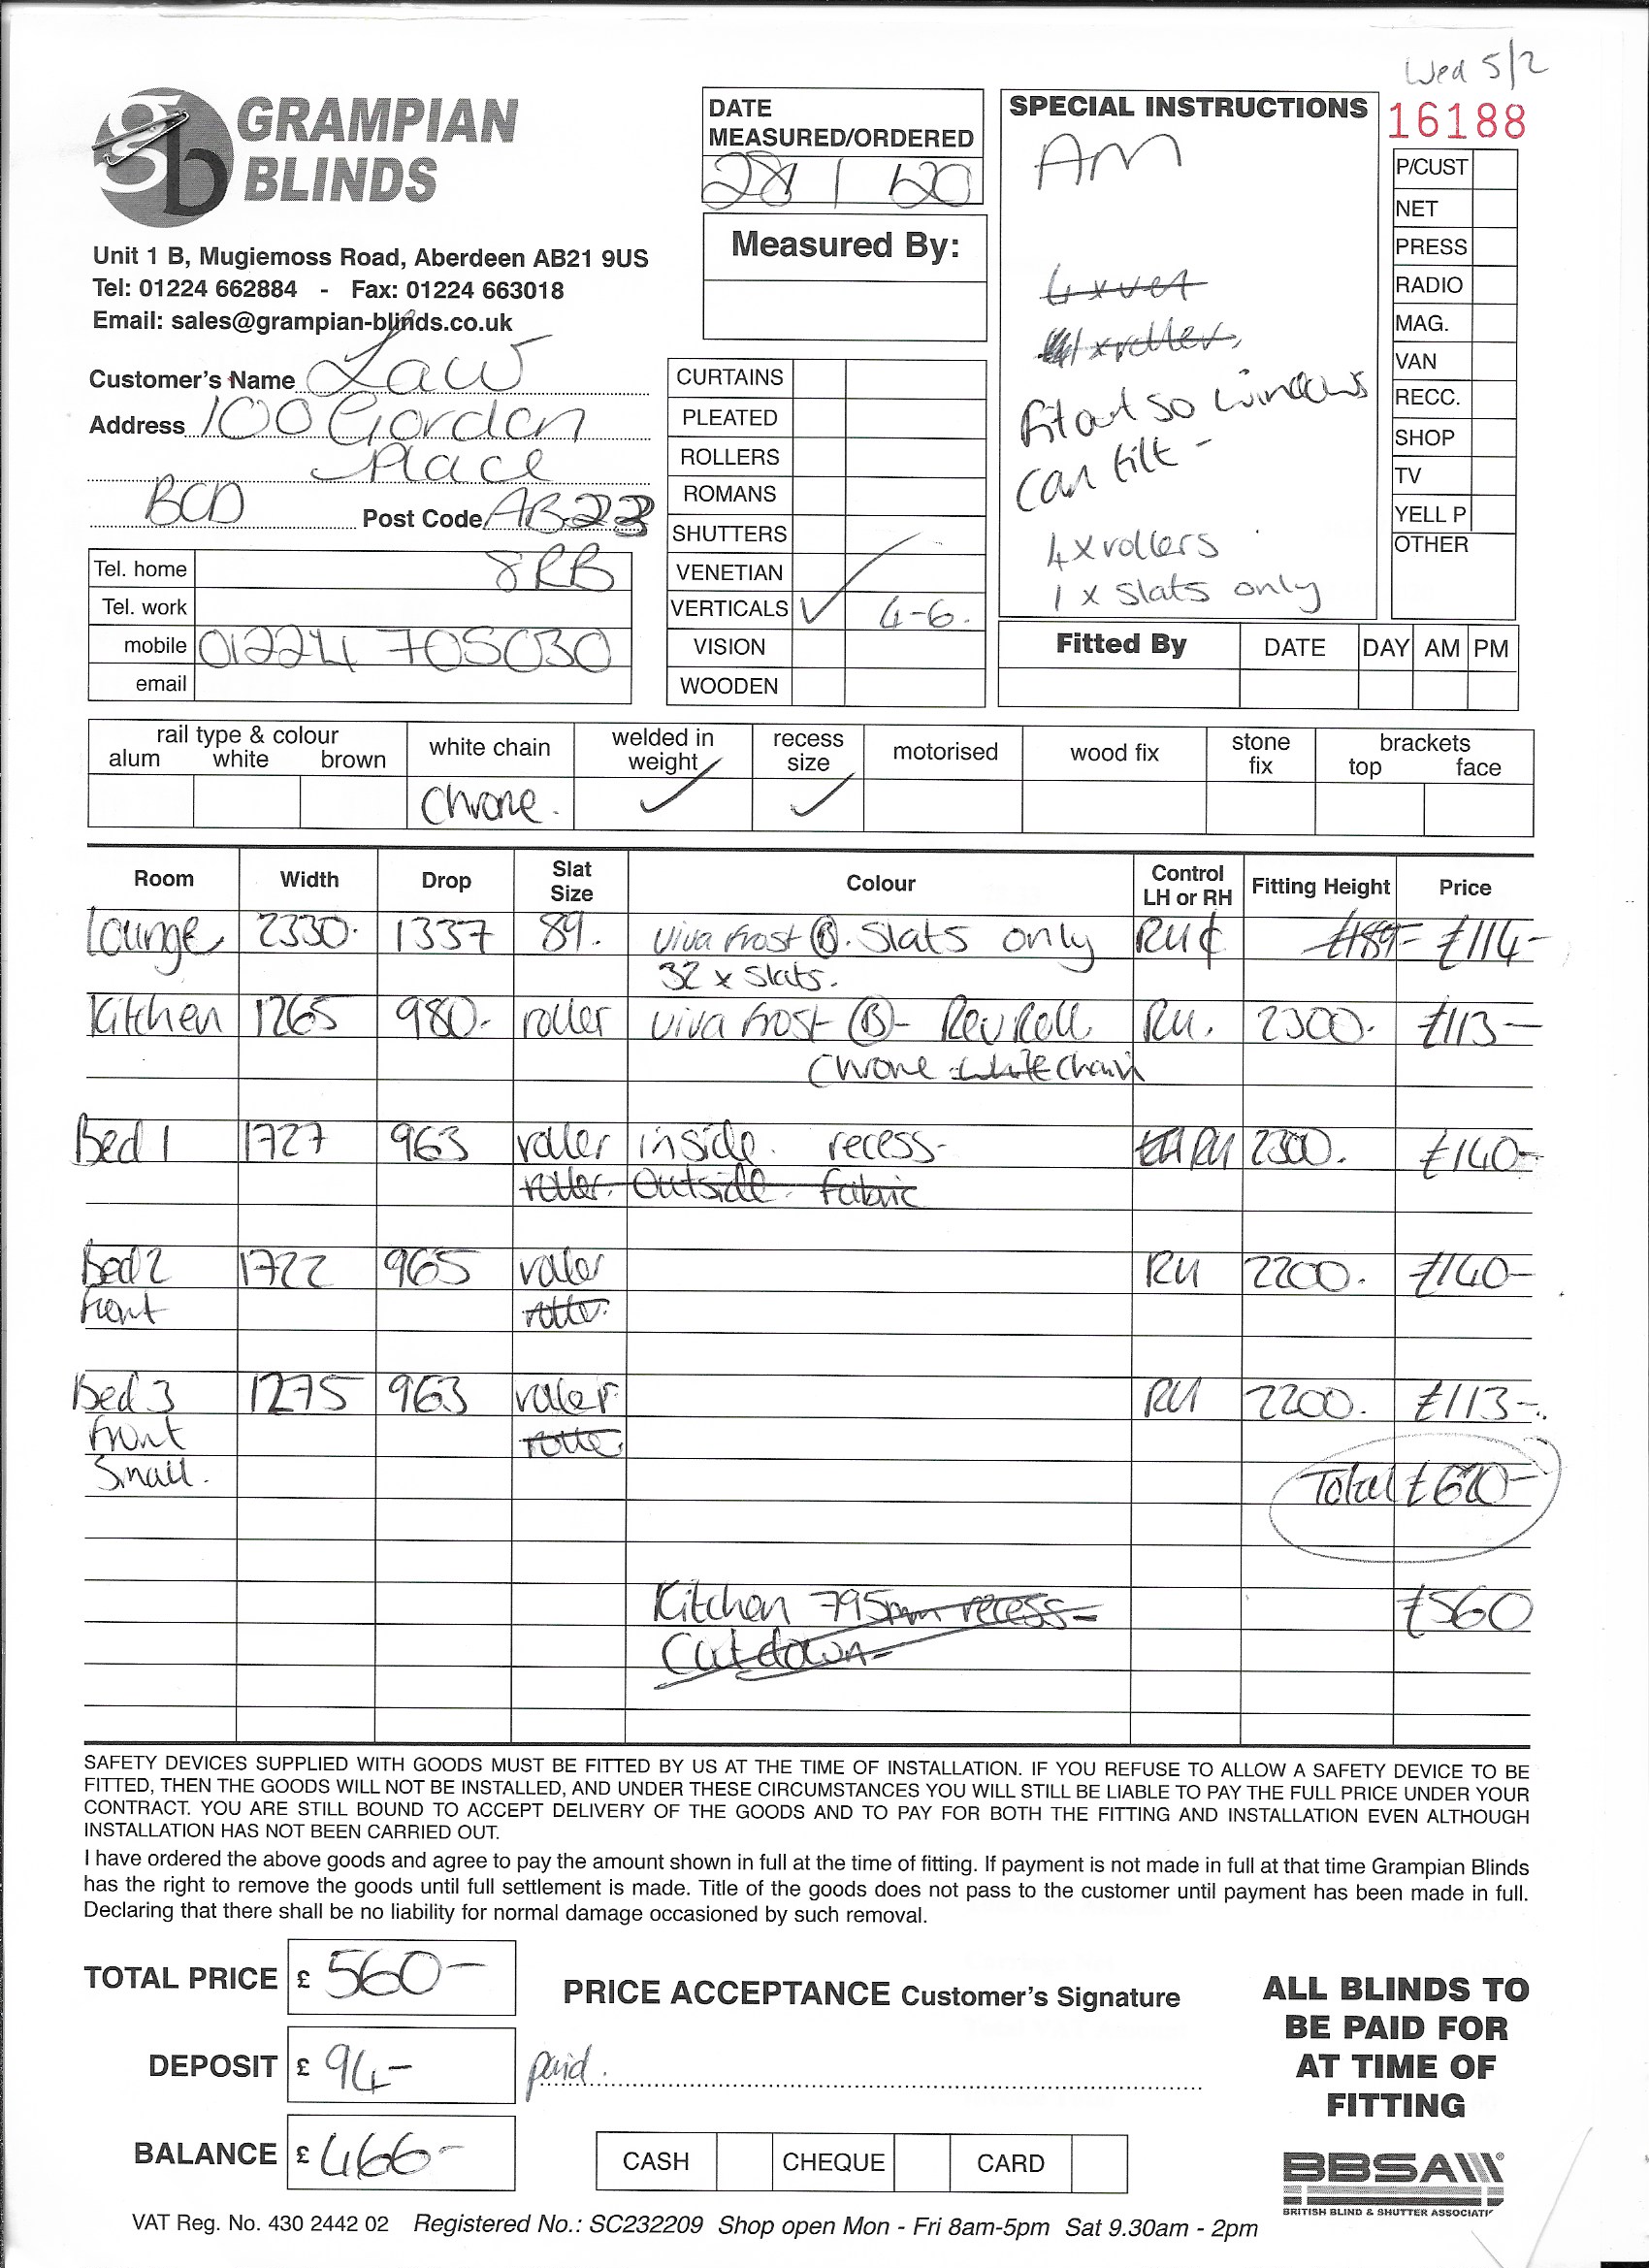 Wed 5/2
GRAMPIAN
BLINDS
Unit 1 B, Mugiemoss Road, Aberdeen AB21 9US
Tel: 01224 662884 - Fax: 01224 663018
Email: sales@grampian-blinds.co.uk
Customer's Name Law
Address 100 Gordon
Place
BOD Post Code AB22
Tel. home 8RB
Tel. work
mobile 01224 705030
email
DATE
MEASURED/ORDERED
28 1 20
Measured By:
CURTAINS
PLEATED
ROLLERS
ROMANS
SHUTTERS
VENETIAN
VERTICALS ✓ 4-6.
VISION
WOODEN
SPECIAL INSTRUCTIONS
AM
4 x vet
1 x roller
Fit out so windows
can tilt -
4 x rollers
1 x slats only
16188
P/CUST
NET
PRESS
RADIO
MAG.
VAN
RECC.
SHOP
TV
YELL P
OTHER
Fitted By DATE DAY AM PM
rail type & colour
alum white brown
white chain
Chrome.
welded in
weight
✓
recess
size
✓
motorised
wood fix
stone
fix
brackets
top face
Room Width Drop Slat Size Colour Control LH or RH Fitting Height Price
Lounge 2330. 1337 89. Viva Frost B. Slats only RH £189- £114-
32 x Slats.
Kitchen 1265 980. roller Viva Frost B - Rev Roll RH. 2300. £113-
Chrome white chain
Bed 1 1727 963 roller inside. recess- LH RH 2300. £140-
roller. Outside. fabric
Bed 2 1722 965 roller RH 2200. £140-
Front roller
Bed 3 1275 963 roller RH 2200. £113-
Front roller
Small. Total £620-
Kitchen 795mm recess- £560
Cut down-
SAFETY DEVICES SUPPLIED WITH GOODS MUST BE FITTED BY US AT THE TIME OF INSTALLATION. IF YOU REFUSE TO ALLOW A SAFETY DEVICE TO BE
FITTED, THEN THE GOODS WILL NOT BE INSTALLED, AND UNDER THESE CIRCUMSTANCES YOU WILL STILL BE LIABLE TO PAY THE FULL PRICE UNDER YOUR
CONTRACT. YOU ARE STILL BOUND TO ACCEPT DELIVERY OF THE GOODS AND TO PAY FOR BOTH THE FITTING AND INSTALLATION EVEN ALTHOUGH
INSTALLATION HAS NOT BEEN CARRIED OUT.
I have ordered the above goods and agree to pay the amount shown in full at the time of fitting. If payment is not made in full at that time Grampian Blinds
has the right to remove the goods until full settlement is made. Title of the goods does not pass to the customer until payment has been made in full.
Declaring that there shall be no liability for normal damage occasioned by such removal.
TOTAL PRICE £ 560-
DEPOSIT £ 94-
BALANCE £ 466-
PRICE ACCEPTANCE Customer's Signature
paid.
CASH CHEQUE CARD
ALL BLINDS TO
BE PAID FOR
AT TIME OF
FITTING
BBSA
BRITISH BLIND & SHUTTER ASSOCIATI
VAT Reg. No. 430 2442 02 Registered No.: SC232209 Shop open Mon - Fri 8am-5pm Sat 9.30am - 2pm